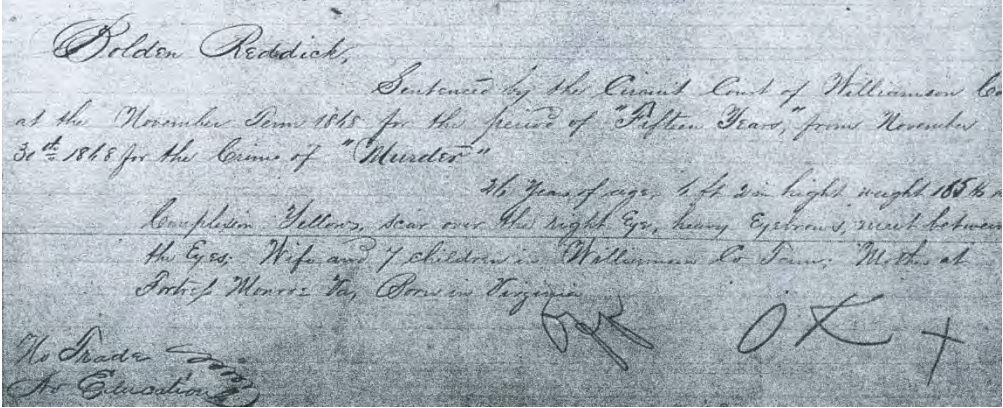 Bolden Reddick,
Sentenced by the Circuit Court of Williamson Co
at the November Term 1868 for the period of "Fifteen Years," from November
30th 1868 for the Crime of "Murder"
26 Years of age, 6 ft 2 in hight weight 185 lbs
Complexion Yellow, scar over the right Eye, heavy Eyebrows, meet between
the Eyes: Wife and 7 children in Williamson Co Tenn: Mother at
Fortress Monroe Va, Born in Virginia
OK
No Trade
No Education